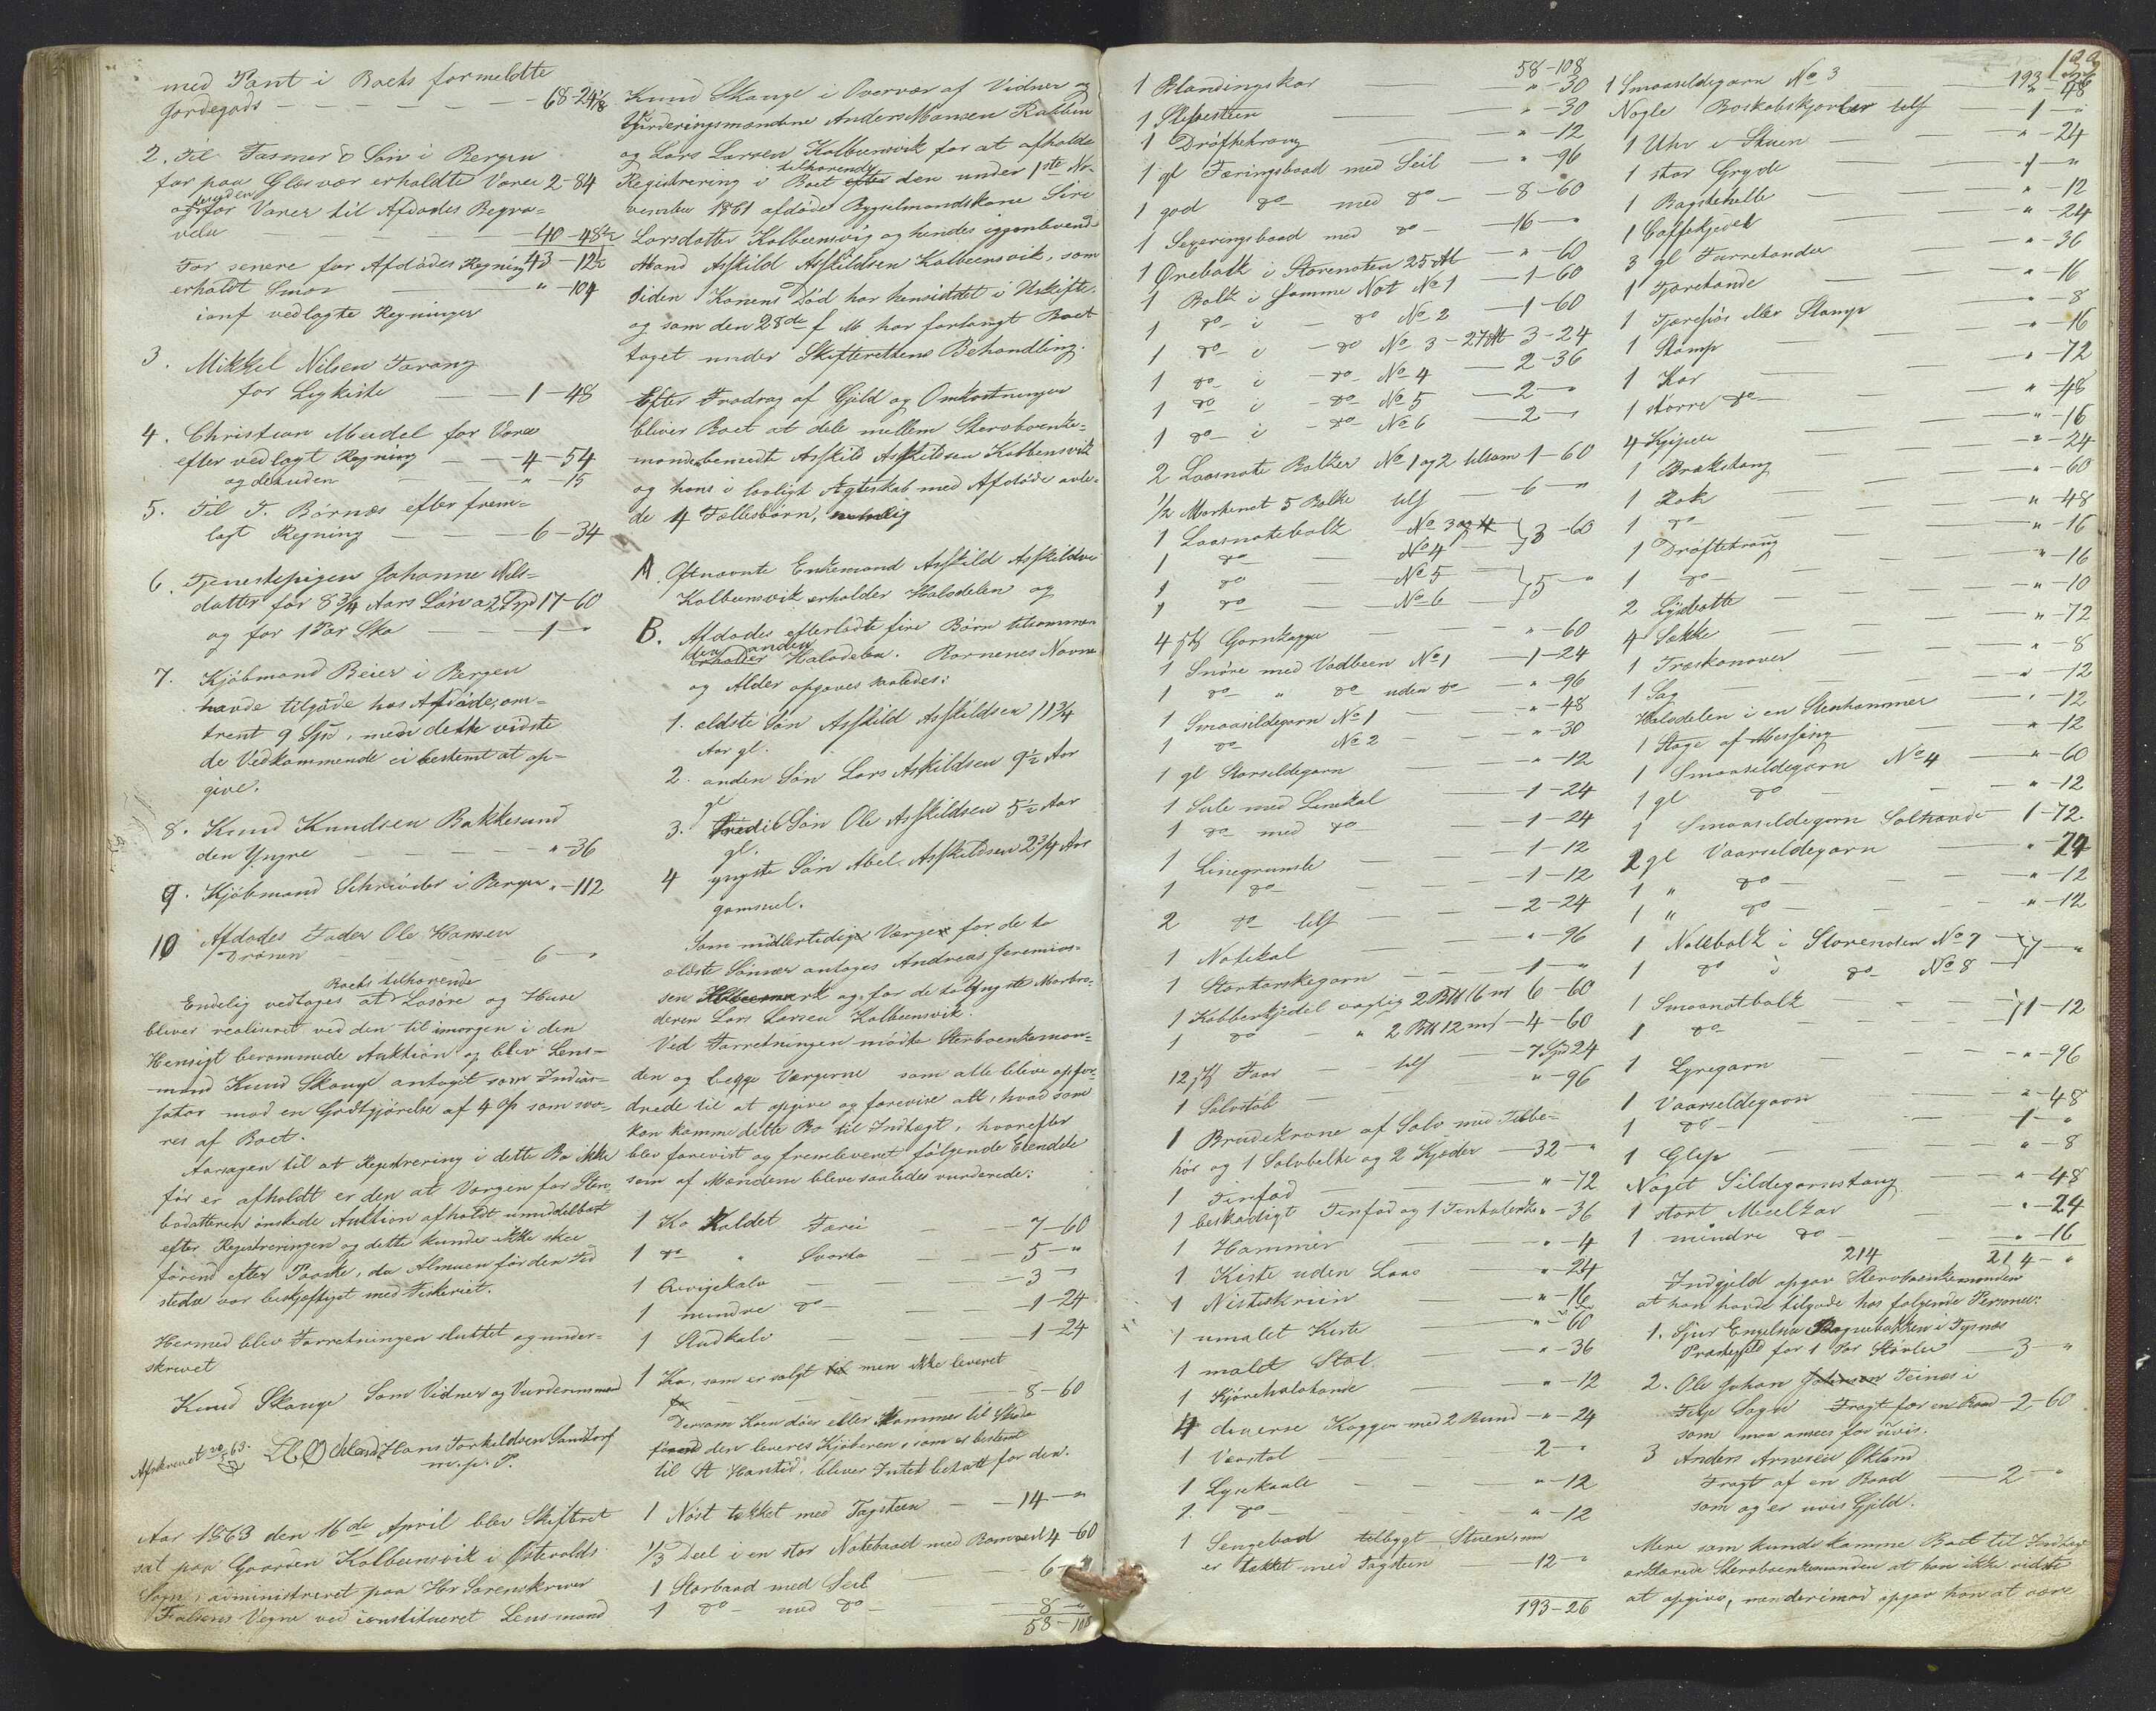 med Pant i Boets formeldte
Jordegods — 68-24 1/8
2. Til Fasmer & Søn i Bergen
for paa Glesvær erholdte Varer 2-84
og desuden for Varer til Afdødes Begra-
velse — 40-48½
43-12½
For senere for Afdødes Regning
erholdt Smør — " -104
jonf vedlagte Regninger
3. Mikkel Nilsen Tarang
for Ligkiste — 1-48
4. Christian Meidel for Varer
efter vedlagt Regning — 4-54
og desuden — " -15
5. Til T. Børnæs efter frem-
lagt Regning — 6-34
6. Tjenestepigen Johanne Nels-
datter for 8¾ Aars Løn a 2 Spd 17-60
og for 1 Par Sko — 1 - "
7. Kjøbmand Beier i Bergen
havde tilgode hos Afdøde, om-
trent 9 Spd, men dette vidste
de Vedkommende ei bestemt at op-
give.
8. Knud Knudsen Bakkesund
den Yngre — " -36
9. Kjøbmand Schrøder i Bergen " -112
10 Afdødes Fader Ole Hansen
Drønen — 6 - "
Endelig vedtoges at Boets tilhørende Løsøre og Huse
bliver realiseret ved den til imorgen i den
Hensigt berammede Auktion og blev Lens-
mand Knud Skauge antaget som Indcas-
sator mod en Godtgjørelse af 4 % som sva-
res af Boet.
Aarsagen til at Registrering i dette Bo ikke
før er afholdt er den at Værgen for Ster-
bodatteren ønskede Auktion afholdt umiddelbart
efter Registreringen og dette kunde ikke skee
førend efter Paaske, da Almuen før den Tid
stedse var beskjæftiget med Fiskeriet.
Hermed blev Forretningen sluttet og under-
skrevet
Knud Skauge Som Vidner og Vurderinsmænd
Afskrevet 20/5 63. Hans Torkildsen Sandtorf
m. p. P.
Aar 1863 den 16de April blev Skifteret
sat paa Gaarden Kolbeensvik i Østervolds
Sogn, administreret paa Hr Sorenskriver
Falsens Vegne ved constitueret Lensmand
Knud Skauge i Overvær af Vidner og
Vurderingsmændene Anders Monsen Rabben
og Lars Larsen Kolbeensvik for at afholde
Registrering i Boet tilhørende efter den under 1ste No-
vember 1861 afdøde Bygselmandskone Siri
Larsdatter Kolbeensvig og hendes igjenlevende
Mand Asskild Asskildsen Kolbeensvik, som
siden Konens Død har hensiddet i Uskifte
og som den 28de f M har forlangt Boet
taget under Skifterettens Behandling.
Efter Fradrag af Gjeld og Omkostninger
bliver Boet at dele mellem Sterboenke-
manden bemeldte Asskild Asskildsen Kolbensvik
og hans i lovligt Ægteskab med Afdøde avle-
de 4 Fællesbørn, nemlig
A Oftnævnte Enkemand Asskild Asskildsen
Kolbeensvik erholder Halvdelen og
B. Afdødes efterladte fire Børn tilsammen
den anden erholder Halvdelen. Børnenes Navne
og Alder opgaves saaledes:
1. ældste Søn Asskild Asskildsen 11¾
Aar gl.
2. anden Søn Lars Askildsen 9½ Aar
gl
3. Tredie Søn Ole Asskildsen 5½ Aar
gl.
4 yngste Søn Abel Asskildsen 2¾ Aar
gammel.
Som midlertidige Værger for de to
ældste Sønner antoges Andreas Jeremias-
sen og for de to yngste Morbro-
deren Lars Larsen Kolbeensvik.
Ved Forretningen mødte Sterboenkeman-
den og begge Værgerne som alle bleve opfor-
drede til at opgive og forevise alt, hvad som
kan komme dette Bo til Indtægt, hvorefter
blev forevist og fremleveret følgende Eiendele
som af Mændene bleve saaledes vurderede:
1 Ko Kaldet Færei — 7-60
1 do " Svorta — 5 - "
1 Qvigekalv — 3 - "
1 mindre do — 1-24
1 Studkalv — 1-24
1 Ko, som er solgt til men ikke leveret
for — 8-60
Dersom Koen døer eller Kommer til Skade
førend den leveres Kjøberen, som er bestemt
til St Hanstid, bliver Intet betalt for den.
1 Nøst tækket med Tagsteen — 14 - "
1/3 Deel i en stor Notebaad med 4-60
1 Storbaad med Seil — 6 - "
1 do med do — 8 - "
58-108
58-108
1 Blandingskar — " -30
1 Slibesteen — " -30
1 Drøftetraug — " -12
1 gl Færingsbaad med Seil — " -96
1 god do med do — 8-60
1 Sexæringsbaad med do — 16 - "
1 Ørebolk i Storenoten 25 Al — " -60
1 Bolk i samme Not No 1 — 1-60
1 do i — do No 2 — 1-60
1 do i — do No 3 - 27 Al 3-24
1 do i — do No 4 — 2-36
1 do i — do No 5 — 2 - "
1 do i — do No 6 — 2 - "
2 Laasnote Bolker No 1 og 2 tilsam 1-60
½ Morkenot 5 Bolke tils — 6 - "
1 Laasnotebolk No 3 og 4 } 3-60
1 do — No 4
1 do — No 5 } 5 - "
1 do — No 6
4 stk Garnkagge — " -60
1 Snøre med Vadbeen No 1 — 1-24
1 do " do uden do — " -96
1 Smaasildegarn No 1 — " -48
1 do No 2 — " -30
1 gl Storsildegarn — " -12
1 Sule med Linekal — 1-24
1 do med do — 1-24
1 Linegrunsle — 1-12
1 do — 1-12
2 do tils — 2-24
1 Notekal — " -96
1 Stortorskegarn — 1 - "
1 Kobberkjedel vægtig 2 B℔ 16 m 6-60
1 do " 2 B℔ 12 m — 4-60
12 stk Faar — tils — 7 Spd 24
1 Sølvstob — " -96
1 Brudekrone af Sølv med Tilbe-
hør og 1 Sølvbelte og 2 Kjæder — 32 - "
1 Tinfad — " -72
1 beskadigt Tinfad og 1 Tintalerken " -36
1 Hammer — " -4
1 Kiste uden Laas — " -24
1 Nisteskriin — " -16
1 umalet Kiste — " -60
1 malet Stol — " -36
1 Kjørehalstønde — " -12
4 diverse Kagger med 2 Bund — " -24
1 Vævstol — 2 - "
1 Lysekaale — " -12
1. do — " -12
1 Sengebod tilbygt Stuen, som
er tækket med Tagsteen — 12 - "
193-26
122
193-26
1 Smaasildegarn No 3 — " -48
Nogle Boskabskjørler tils — 1 - "
1 Uhr i Stuen — " -24
1 stor Gryde — 1 - "
1 Bagstehelle — " -12
1 Caffekjedel — " -24
3 gl Tørretønder — " -36
1 Tjæretønde — " -16
1 Tjærefjøs eller Stamp — " -8
1 Stamp — " -16
1 Kar — " -72
1 større do — " -48
4 Kjiper — " -16
1 Brækstang — " -24
1 Rok — " -60
1 do — " -48
1 Drøftetraug — " -16
1 do — " -16
2 Lysebøtte — " -10
4 Sække — " -72
1 Træskonaver — " -8
1 Sag — " -12
Halvdelen i en Stenhammer — " -12
1 Stage af Messing — " -12
1 Smaasildegarn No 4 — " -60
1 gl do — " -12
1 Smaasildegarn Solhavde 1-72
2 gl Vaarsildegarn — " -24
1 " do — " -12
1 " do — " -12
1 Notebolk i Storenoten No 7 } 7 - "
1 do i do No 8
1 Smaanotbolk } 1-12
1 do
1 Lyregarn — " -96
1 Vaarsildegarn — " -48
1 do — 1 - "
1 Glip — " -8
Noget Sildegarnstaug — " -48
1 stort Meelkar — " -24
1 mindre do — " -16
214 214 - "
Indgjeld opgav Sterboenkemanden
at han havde tilgode hos følgende Personer:
1. Sjur Engelsen i Tysnæs
Præstegjeld for 1 Par Støvler — 3 - "
2. Ole Johan Johnson Teinæs i
Fitje Sogn Fragt for en Baad — 2-60
som maa ansees for uvis.
3 Anders Arnesen Økland
Fragt af en Baad — 2 - "
som og er uvis Gjeld.
Mere som kunde komme Boet til Indtægt
erklærede Sterboenkemanden at han ikke vidste
at opgive, manderimod opgav han at være